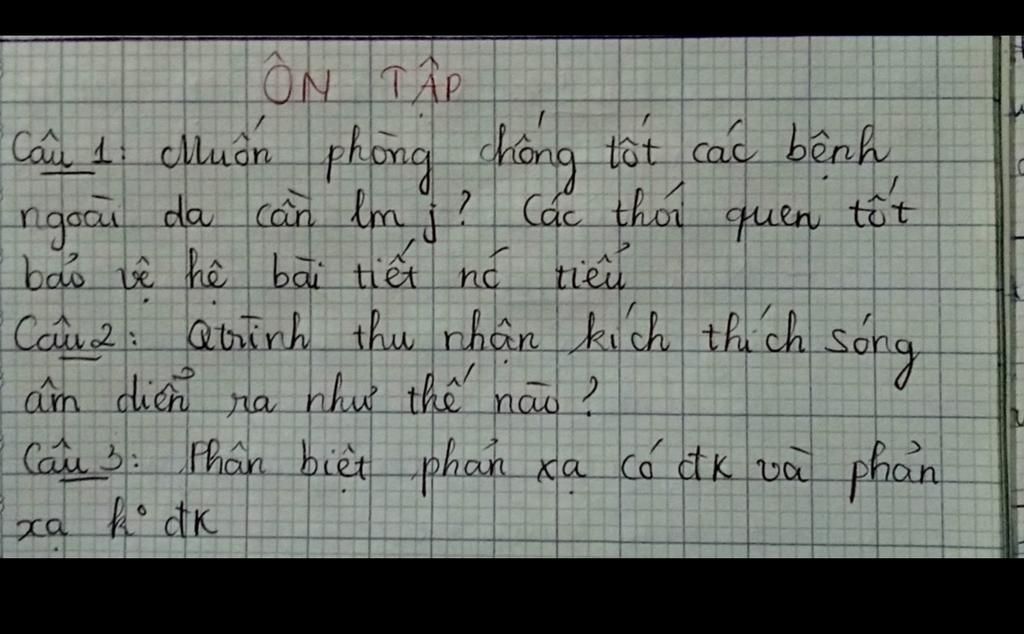 ÔN TẬP
Câu 1: Muốn phòng chống tốt các bệnh
ngoài da cần lm j? Các thói quen tốt
bảo vệ hệ bài tiết nc tiểu
Câu 2: Qtrình thu nhận kích thích sóng
âm diển ra như thế nào?
Câu 3: Phân biệt phản xạ có đk và phản
xạ ko đk